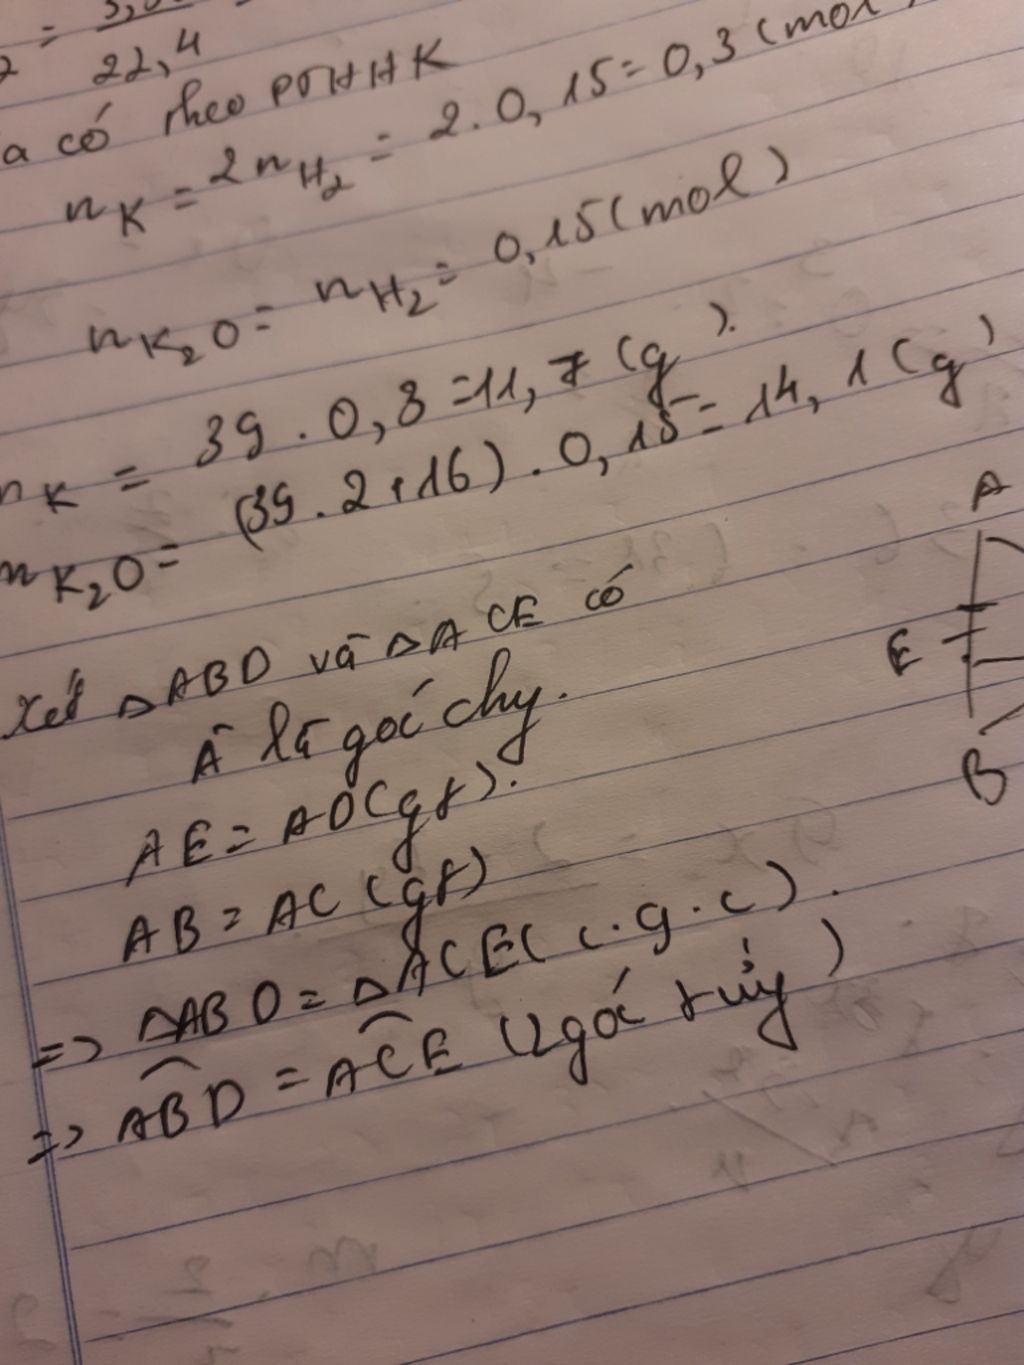 22,4
a có theo PTHHK
nK = 2nH2 = 2.0,15=0,3(mol)
nK2O = nH2 = 0,15(mol)
mK = 39.0,3=11,7(g).
mK2O= (39.2+16).0,15=14,1(g)
Xét △ABD và △ACE có
 là góc chg.
AE=AD(gt).
AB=AC(gt)
=> △ABD=△ACE(c.g.c).
=> ABD=ACE (2góc tứng)
A
E
B